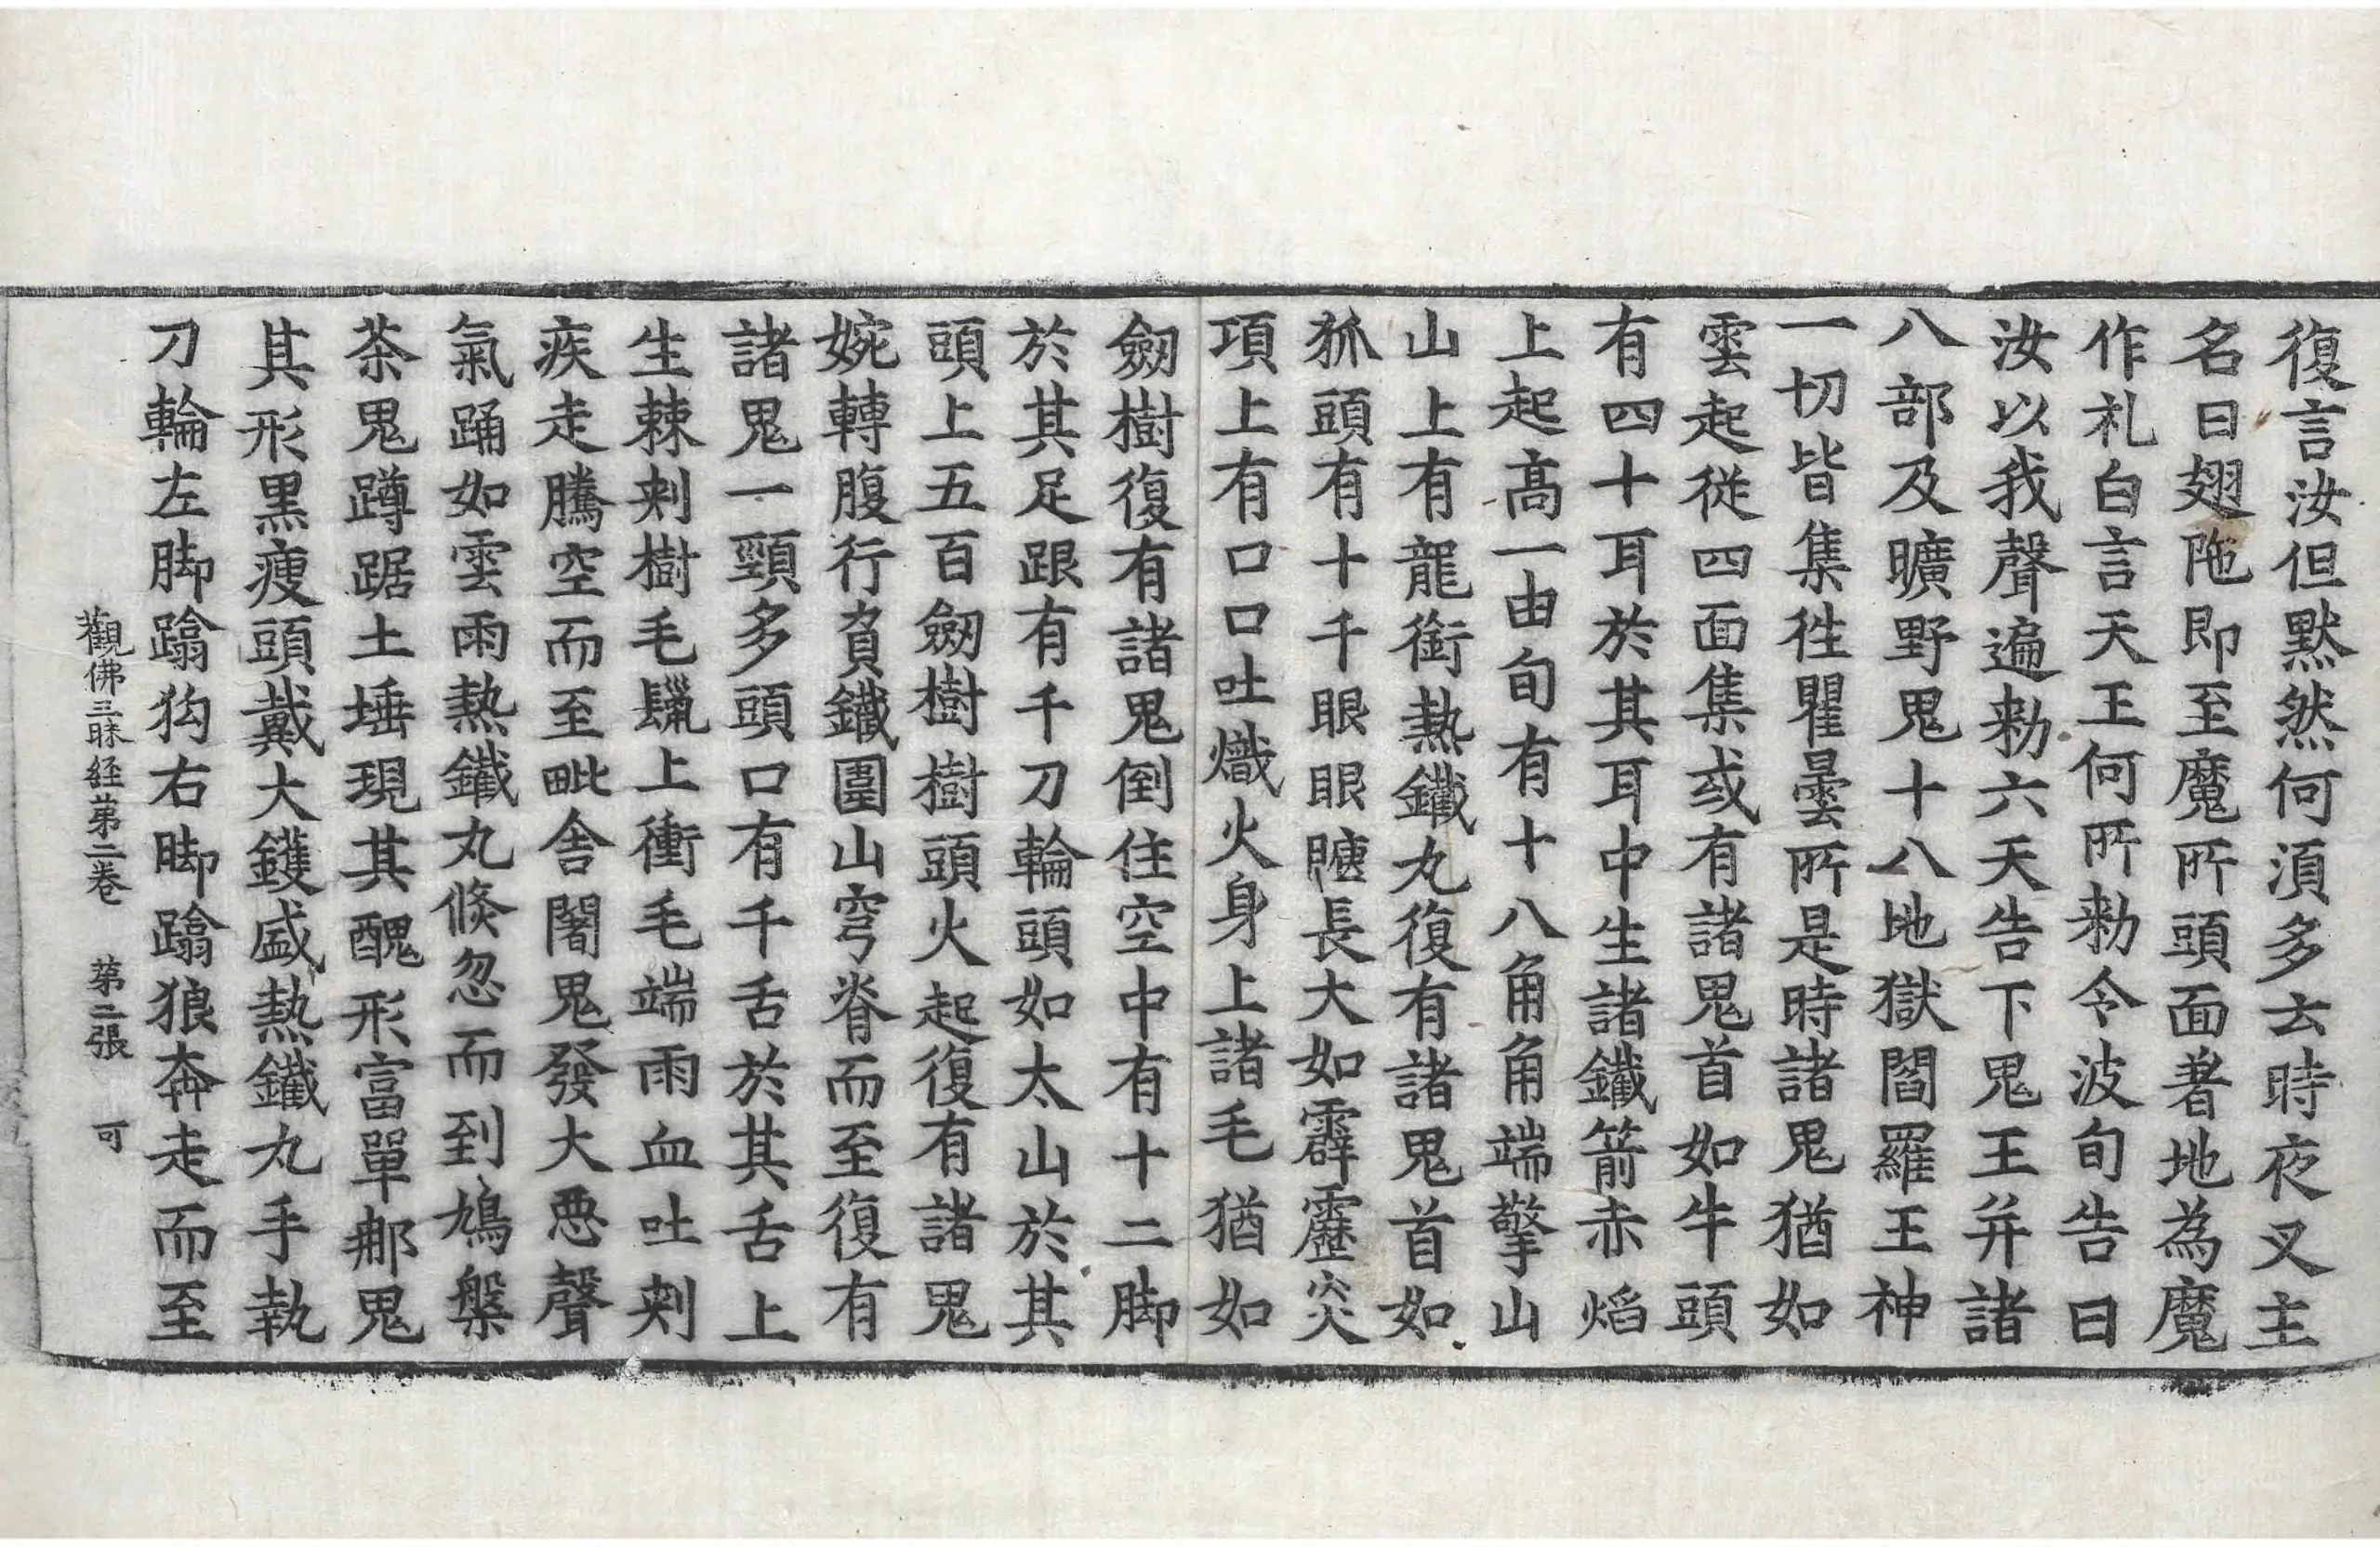 復言汝但黙然何湏多云時夜叉主
名曰翅陁即至魔所頭面著地為魔
作礼白言天王何所勑令波旬告曰
汝以我聲遍勑六天告下鬼王并諸
八部及曠野鬼十八地獄閻羅王神
一切皆集徃瞿曇所是時諸鬼猶如
雲起從四面集或有諸鬼首如牛頭
有四十耳於其耳中生諸鐵箭赤焰
上起髙一由旬有十八角角端擎山
山上有龍銜熱鐵丸復有諸鬼首如
狐頭有十千眼眼睫長大如霹靂炎
項上有口口吐熾火身上諸毛猶如
劒樹復有諸鬼倒住空中有十二脚
於其足跟有千刀輪頭如太山於其
頭上五百劒樹樹頭火起復有諸鬼
婉轉腹行負鐵圍山穹脊而至復有
諸鬼一頸多頭口有千舌於其舌上
生棘刾樹毛鬣上衝毛端雨血吐刾
疾走騰空而至毗舍闍鬼發大惡聲
氣踊如雲雨熱鐵丸倏忽而到鳩槃
荼鬼蹲踞土埵現其醜形富單那鬼
其形黒瘦頭戴大鑊盛熱鐵丸手執
刀輪左脚蹹狗右脚蹹狼奔走而至
觀佛三昧経苐二巻　苐二張　可